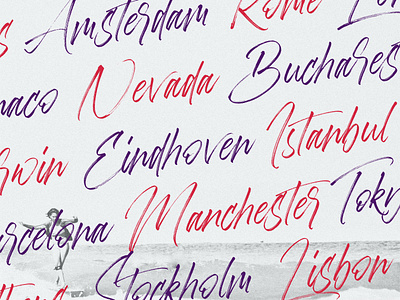 s Amsterdam Rome Lo
naco Nevada Buchares
win Eindhoven Istanbul
arcelona Manchester Toky
Stockholm Lisbon